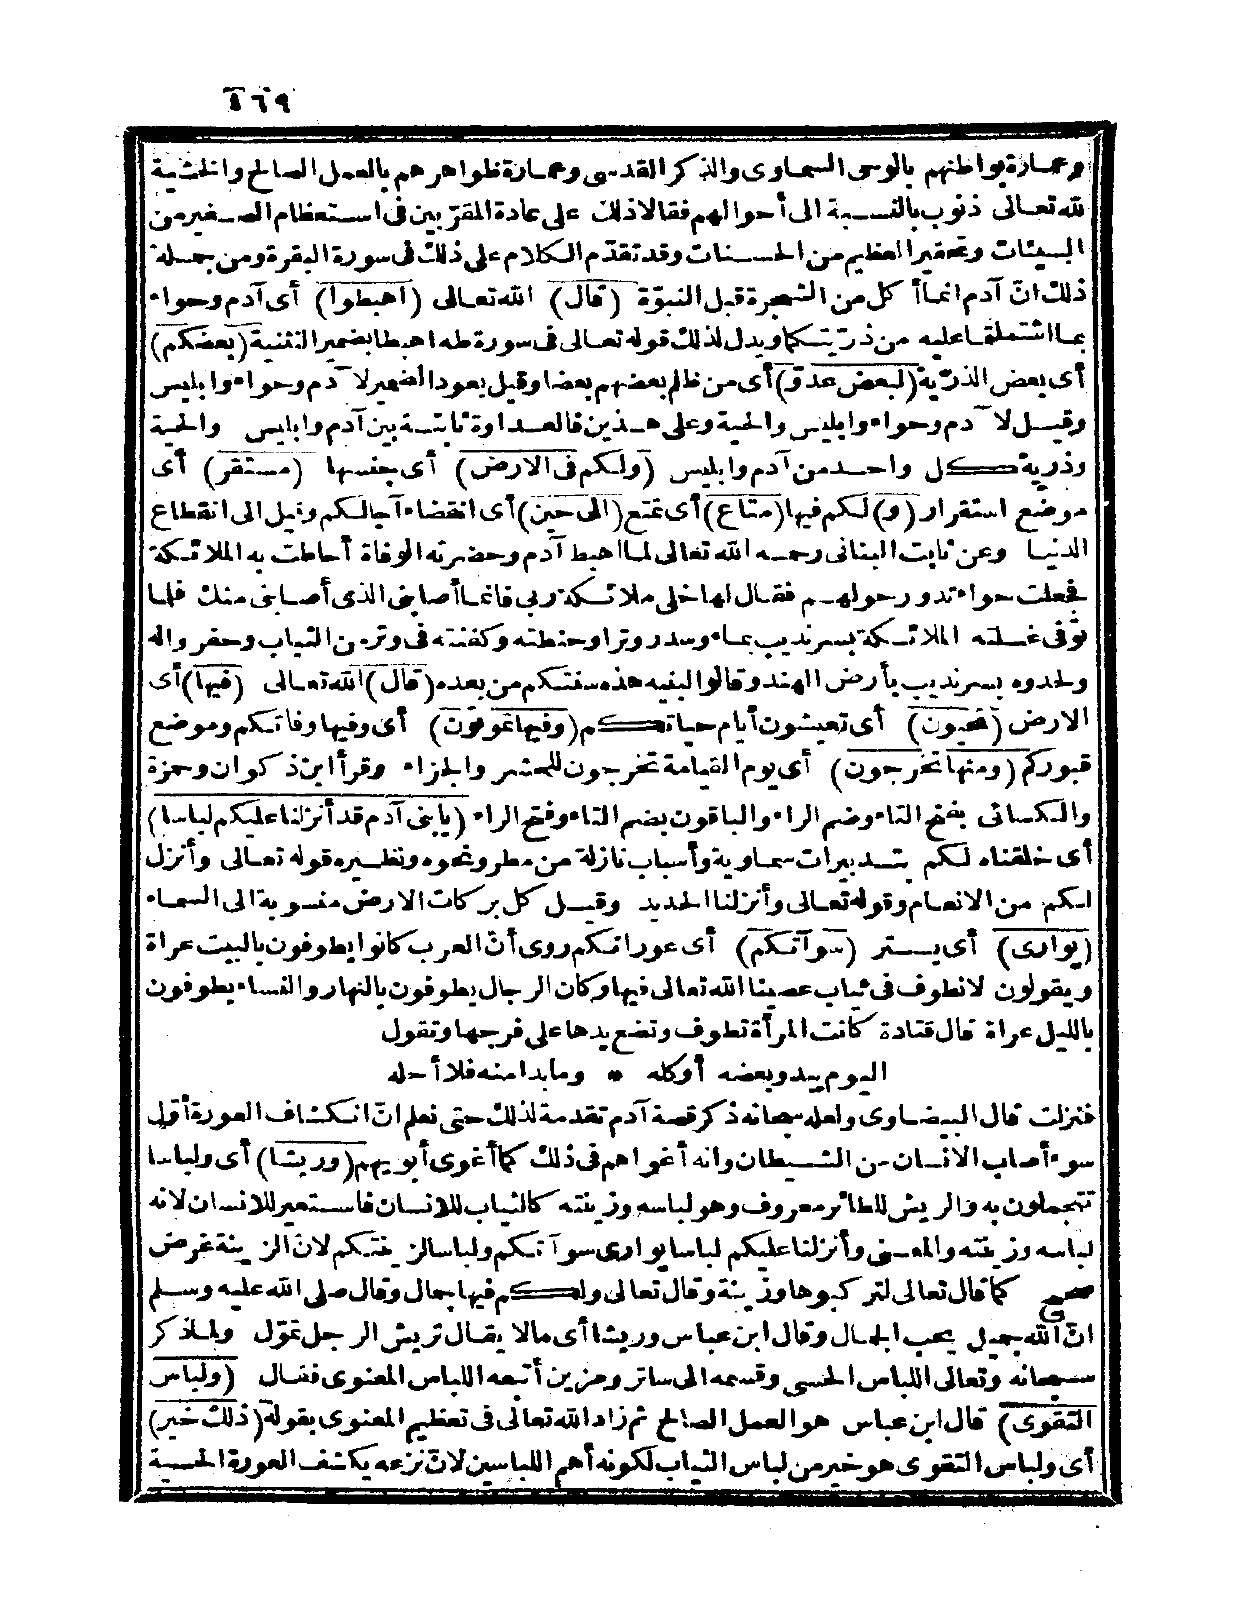 ٤٦٩
وعمارة بواطنهم بالوحى السماوى والذكر القدسى وعمارة ظواهرهم بالعمل الصالح والخشية
لله تعالى ذنوب بالنسبة الى أحوالهم فقالا ذلك على عادة المقرّبين فى استعظام الصغير من
السيئات وتحقير العظيم من الحسنات وقد تقدّم الكلام على ذلك فى سورة البقرة ومن جملة
ذلك انّ آدم انما أكل من الشجرة قبل النبوّة (قال) الله تعالى (اهبطوا) أى آدم وحواء
بما اشتملتما عليه من ذرّيتكما ويدل لذلك قوله تعالى فى سورة طه اهبطا بضمير التثنية (بعضكم)
أى بعض الذرّية (لبعض عدوّ) أى من ظلم بعضهم بعضا وقيل يعود الضمير لآدم وحواء وابليس
وقيل لآدم وحواء وابليس والحية وعلى هذين فالعداوة ثابتة بين آدم وابليس والحية
وذرية كل واحد من آدم وابليس (ولكم فى الارض) أى جنسها (مستقر) أى
موضع استقرار (و) لكم فيها (متاع) أى تمتع (الى حين) أى انقضاء آجالكم وقيل الى انقطاع
الدنيا وعن ثابت البنانى رحمه الله تعالى لما اهبط آدم وحضرته الوفاة أحاطت به الملائكة
فجعلت حواء تدور حولهم فقال لها خلى ملائكة ربى فانما أصابنى الذى أصابنى منك فلما
توّفى غسلته الملائكة بسرنديب بماء وسدر وترا وحنطته وكفنته فى وتر من الثياب وحفر واله
ولحدوه بسرنديب بأرض الهند وقالوا لبنيه هذه سنتكم من بعده (قال) الله تعالى (فيها) أى
الارض (تحيون) أى تعيشون أيام حياتكم (وفيها تموتون) أى وفيها وفاتكم وموضع
قبوركم (ومنها تخرجون) أى يوم القيامة تخرجون للحشر والجزاء وقرأ ابن ذكوان وحمزة
والكسائى بفتح التاء وضم الراء والباقون بضم التاء وفتح الراء (يا بنى آدم قد أنزلنا عليكم لباسا)
أى خلقناه لكم بتدبيرات سماوية وأسباب نازلة من مطر ونحوه ونظيره قوله تعالى وأنزل
لكم من الانعام وقوله تعالى وأنزلنا الحديد وقيل كل بركات الارض منسوبة الى السماء
(يوارى) أى يستر (سوآتكم) أى عوراتكم روى أنّ العرب كانوا يطوفون بالبيت عراة
ويقولون لا نطوف فى ثياب عصينا الله تعالى فيها وكان الرجال يطوفون بالنهار والنساء يطوفون
بالليل عراة قال قتادة كانت المرأة تطوف وتضع يدها على فرجها وتقول
اليوم يبدو بعضه أوكله * وما بدا منه فلا أحله
فنزلت قال البيضاوى ولعله سبحانه ذكر قصة آدم تقدمة لذلك حتى نعلم انّ انكشاف العورة أوّل
سوء أصاب الانسان من الشيطان وانه أغواهم فى ذلك كما أغوى أبويهم (وريشا) أى ولباسا
تتجملون به والريش للطائر معروف وهو لباسه وزينته كالثياب للانسان فاستعير للانسان لانه
لباسه وزينته والمعنى وأنزلنا عليكم لباسا يوارى سوآتكم ولباسا لزينتكم لانّ الزينة غرض
صحيح كما قال تعالى لتركبوها وزينة وقال تعالى ولكم فيها جمال وقال صلى الله عليه وسلم
انّ الله جميل يحب الجمال وقال ابن عباس وريشا أى مالا يقال تريش الرجل تموّل ولما ذكر
سبحانه وتعالى اللباس الحسى وقسمه الى ساتر ومزين أتبعه اللباس المعنوى فقال (ولباس
التقوى) قال ابن عباس هو العمل الصالح ثم زاد الله تعالى فى تعظيم المعنوى بقوله (ذلك خير)
أى ولباس التقوى هو خير من لباس الثياب لكونه أهم اللباسين لانّ نزعه يكشف العورة الحسية